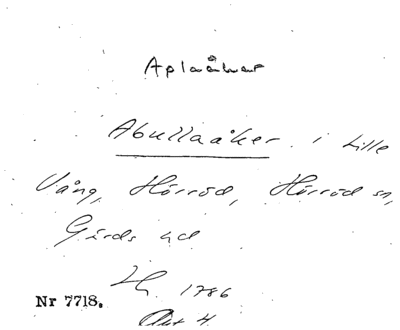 Aplaåkar
Abullaåker i Lille
Vång, Hörröd, Hörröd sn,
Gärds hd
LH. 1786
Akt 4.
Nr 7718.